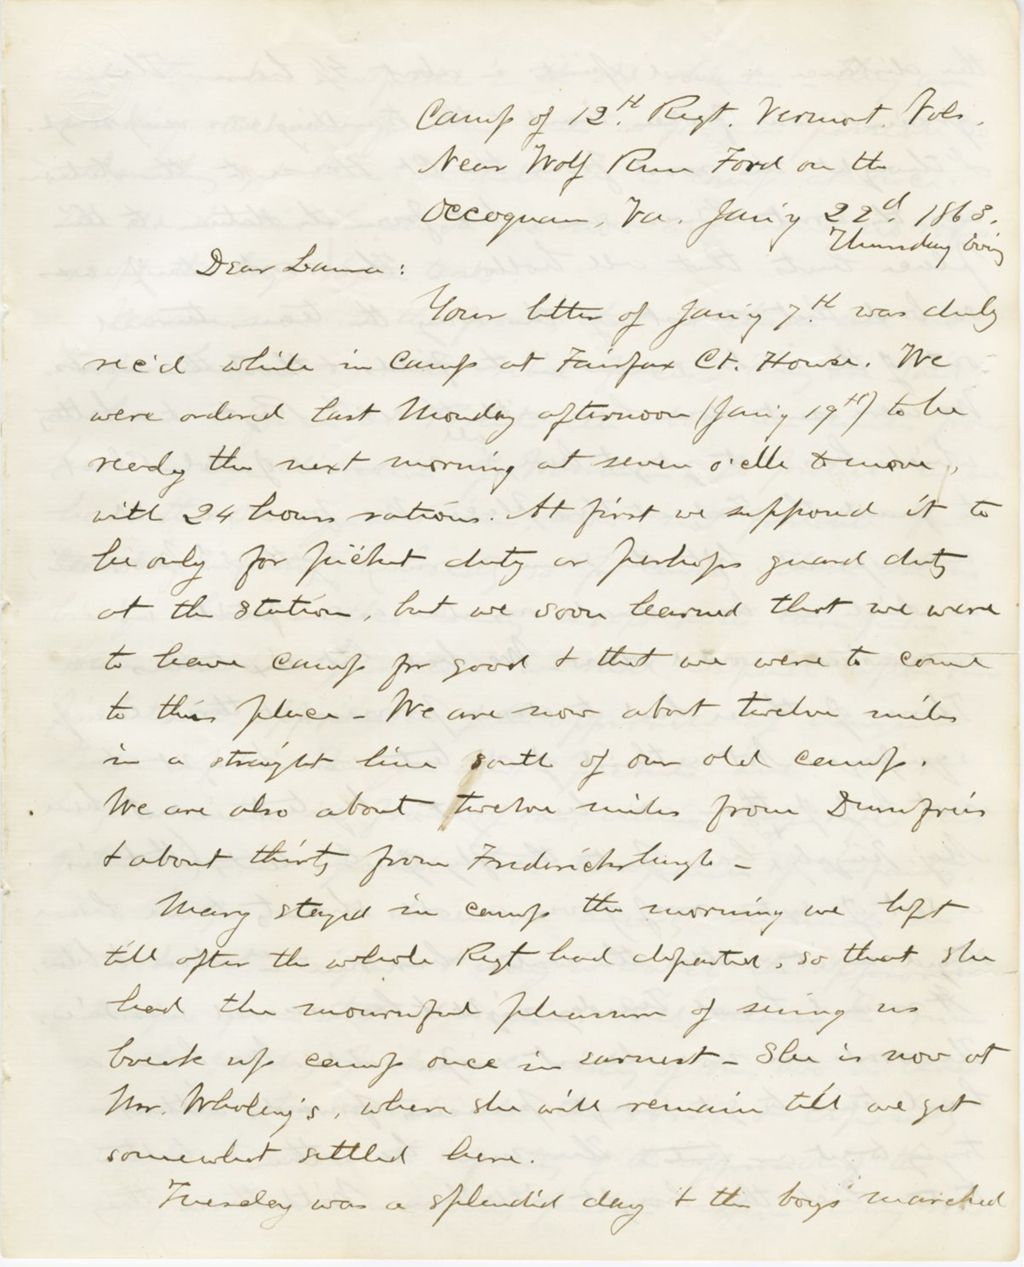 Camp of 12th Regt. Vermont Vols.
Near Wolf Run Ford on the
Occoquan, Va. Jan'y 22d. 1863.
Thursday Eve'g
Dear Laura:
Your letter of Jan'y 7th. was duly
rec'd while in camp at Fairfax Ct. House. We
were ordered last Monday afternoon (Jan'y 19th) to be
ready the next morning at seven o'clk to move,
with 24 hours rations. At first we supposed it to
be only for picket duty or perhaps guard duty
at the station, but we soon learned that we were
to leave camp for good & that we were to come
to this place - We are now about twelve miles
in a straight line south of our old camp.
We are also about twelve miles from Dumfries
& about thirty from Fredericksburgh -
Mary stayed in camp the morning we left
till after the whole Regt had departed, so that she
had the mournful pleasure of seeing us
break up camp once in earnest - She is now at
Mr. Wholey's, where she will remain till we get
somewhat settled here.
Tuesday was a splendid day & the boys marched